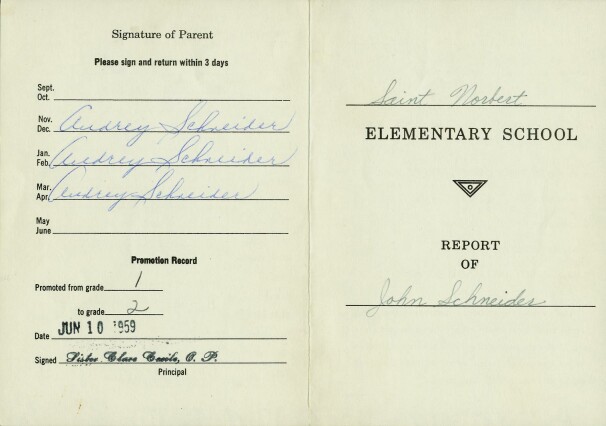 Signature of Parent
Please sign and return within 3 days
Sept.
Oct.
Nov.
Dec. Audrey Schneider
Jan.
Feb. Audrey Schneider
Mar.
Apr. Audrey Schneider
May
June
Promotion Record
Promoted from grade 1
to grade 2
Date JUN 10 1959
Signed Sister Clare Cecile, O. P.
Principal
Saint Norbert
ELEMENTARY SCHOOL
REPORT
OF
John Schneider